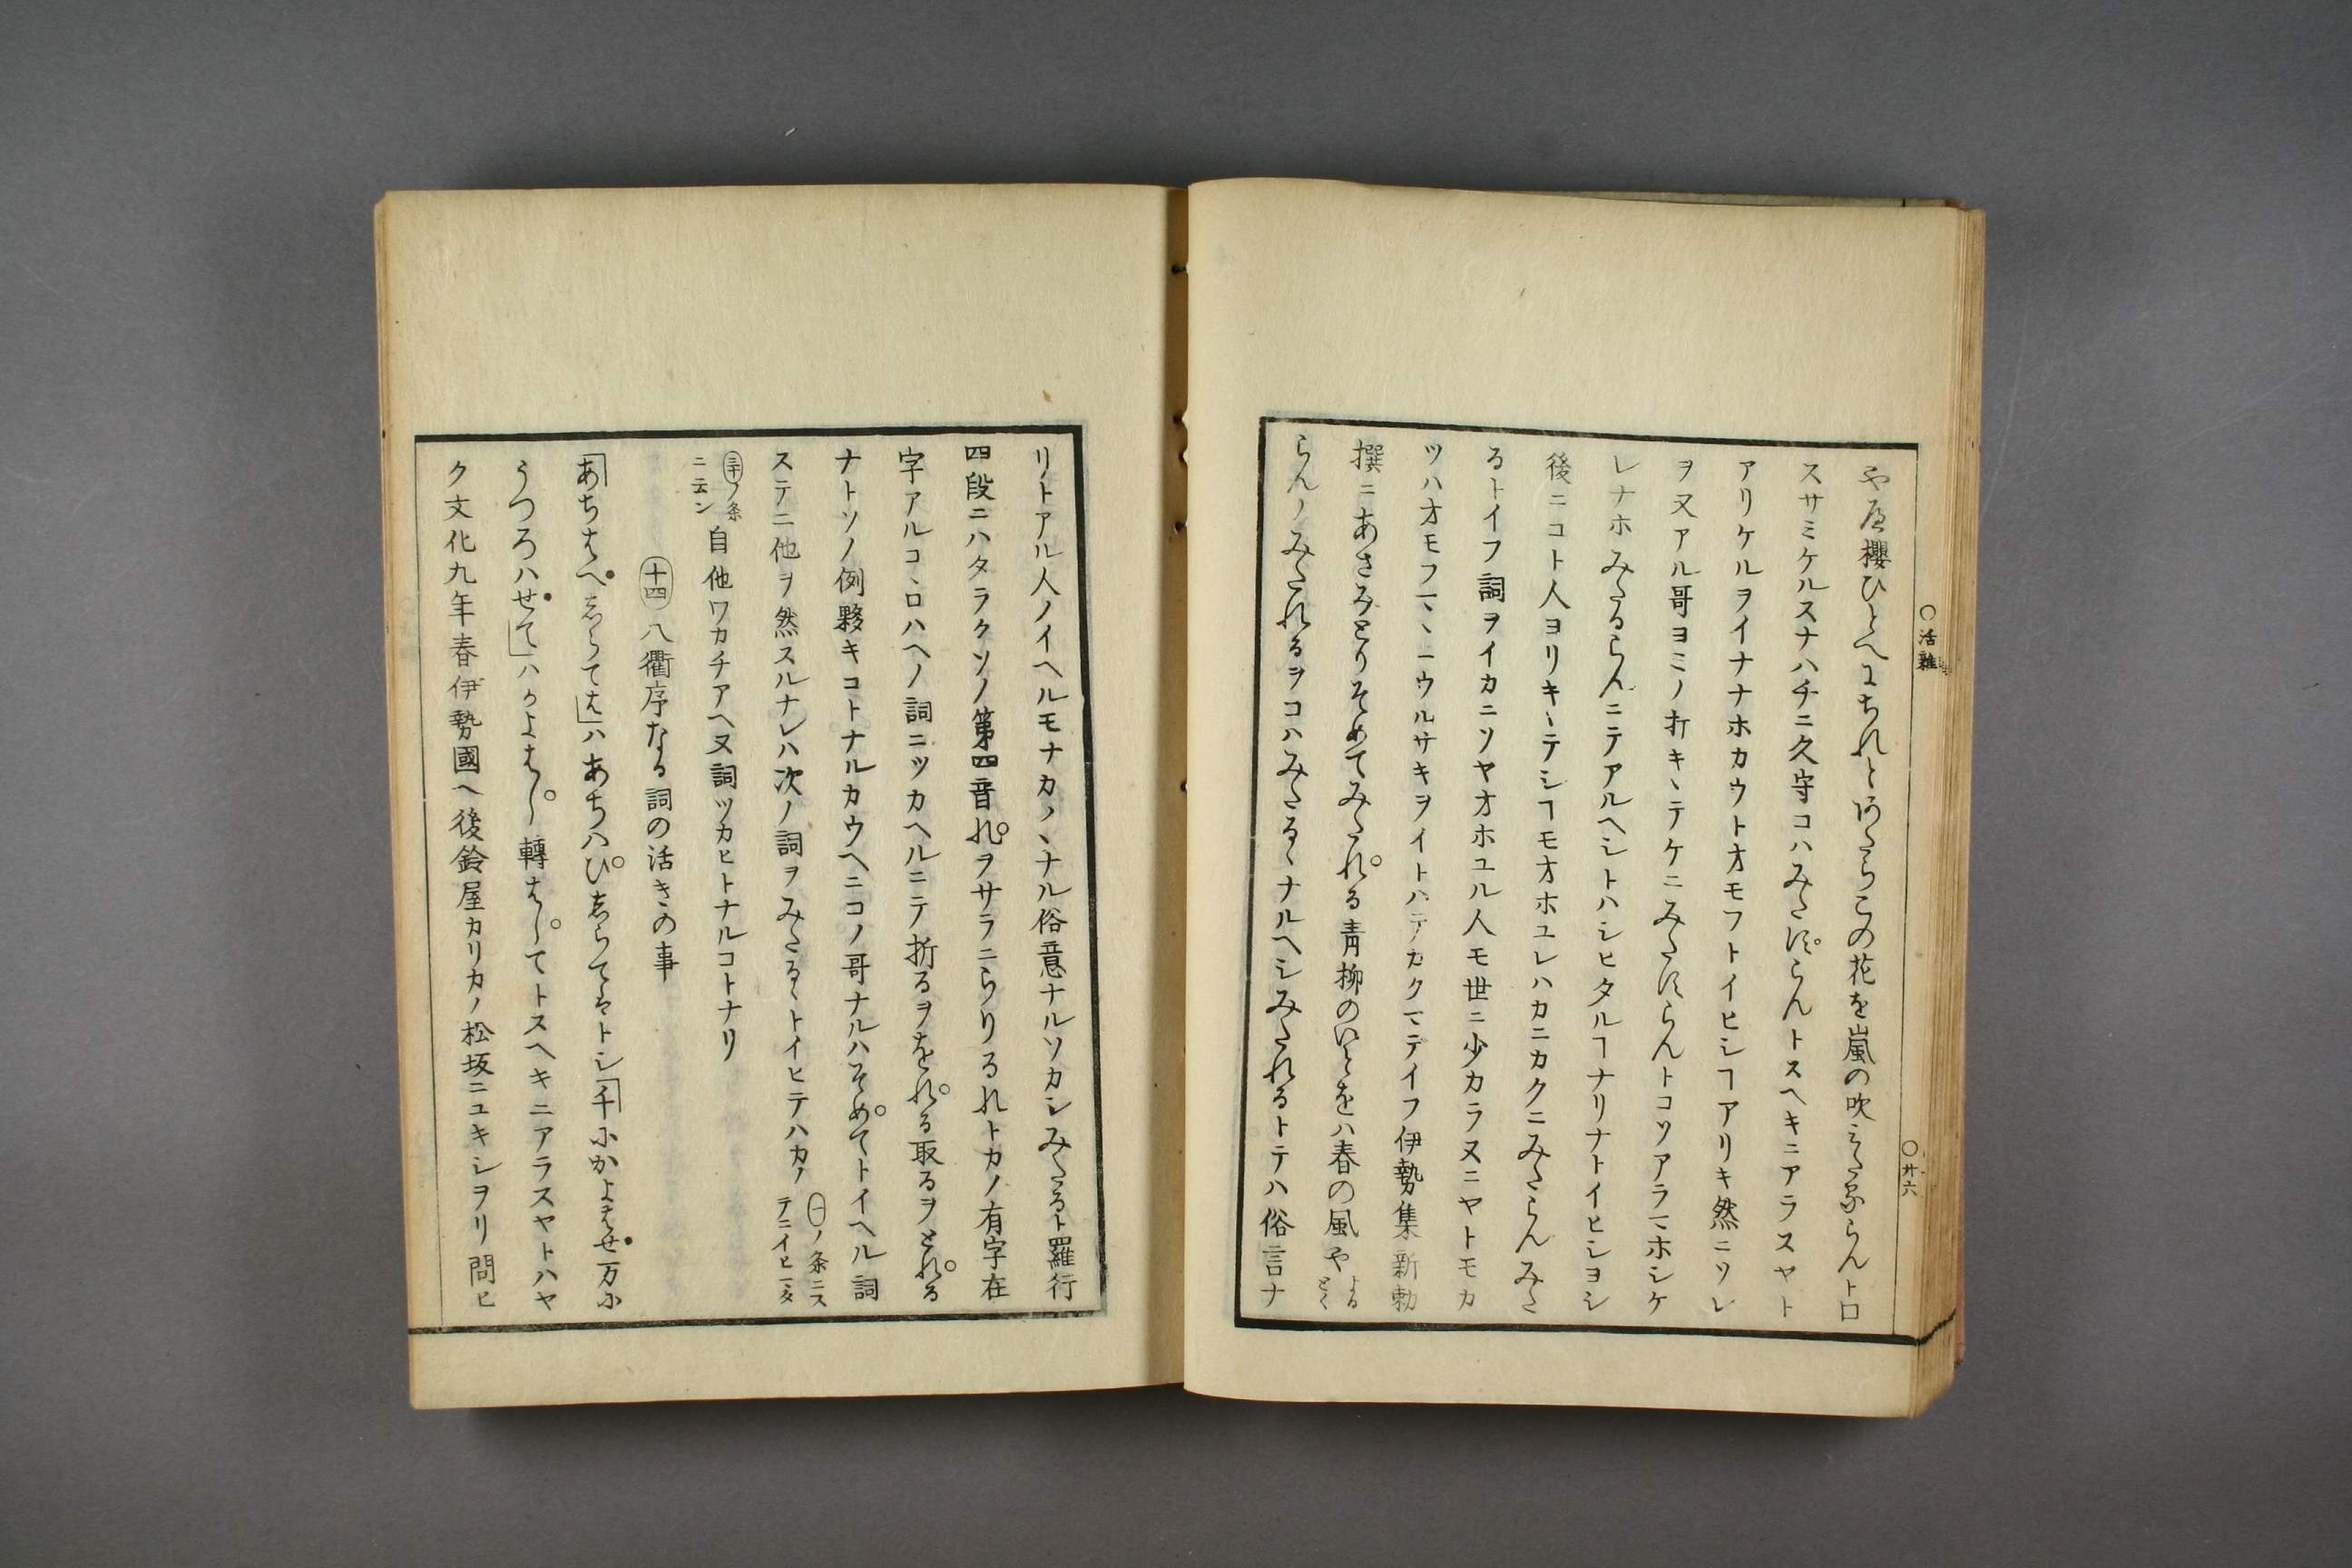 や庭櫻ひとへにちれとあたらこの花を嵐の吹みたるらんト口
スサミケルスナハチニ久守コハみたすらんトスヘキニアラスヤト
アリケルヲイナナホカウトオモフトイヒシヿアリキ然ニソレ
ヲ又アル哥ヨミノ打キヽテケニみたすらんトコソアラマホシケ
レナホみたるらんニテアルヘシトハシヒタルヿナリナトイヒシヨシ
後ニコト人ヨリキヽテシヿモオホユレハカニカクニみたらんみた
るトイフ詞ヲイカニソヤオホユル人モ世ニ少カラヌニヤトモカ
ツハオモフマヽニウルサキヲイトハテカクマテイフ伊勢集新勅
撰ニあさみとりそめてみたれる青柳のいとをハ春の風や よる とく
らんノみたれるヲコハみたるヽナルヘシみたれるトテハ俗言ナ
○活雜
○廾六
リトアル人ノイヘルモナカノヽナル俗意ナルソカシみたるト羅行
四段ニハタラクソノ第四音れヲサラニらりるれトカノ有字在
字アルコヽロハヘノ詞ニツカヘルニテ折るヲをれる取るヲとれる
ナトソノ例夥キコトナルカウヘニコノ哥ナルハそめてトイヘル詞
ステニ他ヲ然スルナレハ次ノ詞ヲみたるヽトイヒテハカノ ㊀ノ条ニス テニイヒ
ノ条 ニ云ン 自他ワカチアヘヌ詞ツカヒトナルコトナリ
十四 八衢序なる詞の活きの事
「あちはへしらては」ハあちハひしらてはトシ「千にかよはせ万に
うつろハせて」ハかよはし轉はしてトスヘキニアラスヤトハヤ
ク文化九年春伊勢國ヘ後鈴屋カリカノ松坂ニユキシヲリ問ヒ